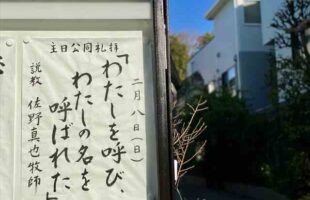 主日公同礼拝
二月八日(日)
「わたしを呼び、
わたしの名を
呼ばれた」
説教 佐野真也牧師